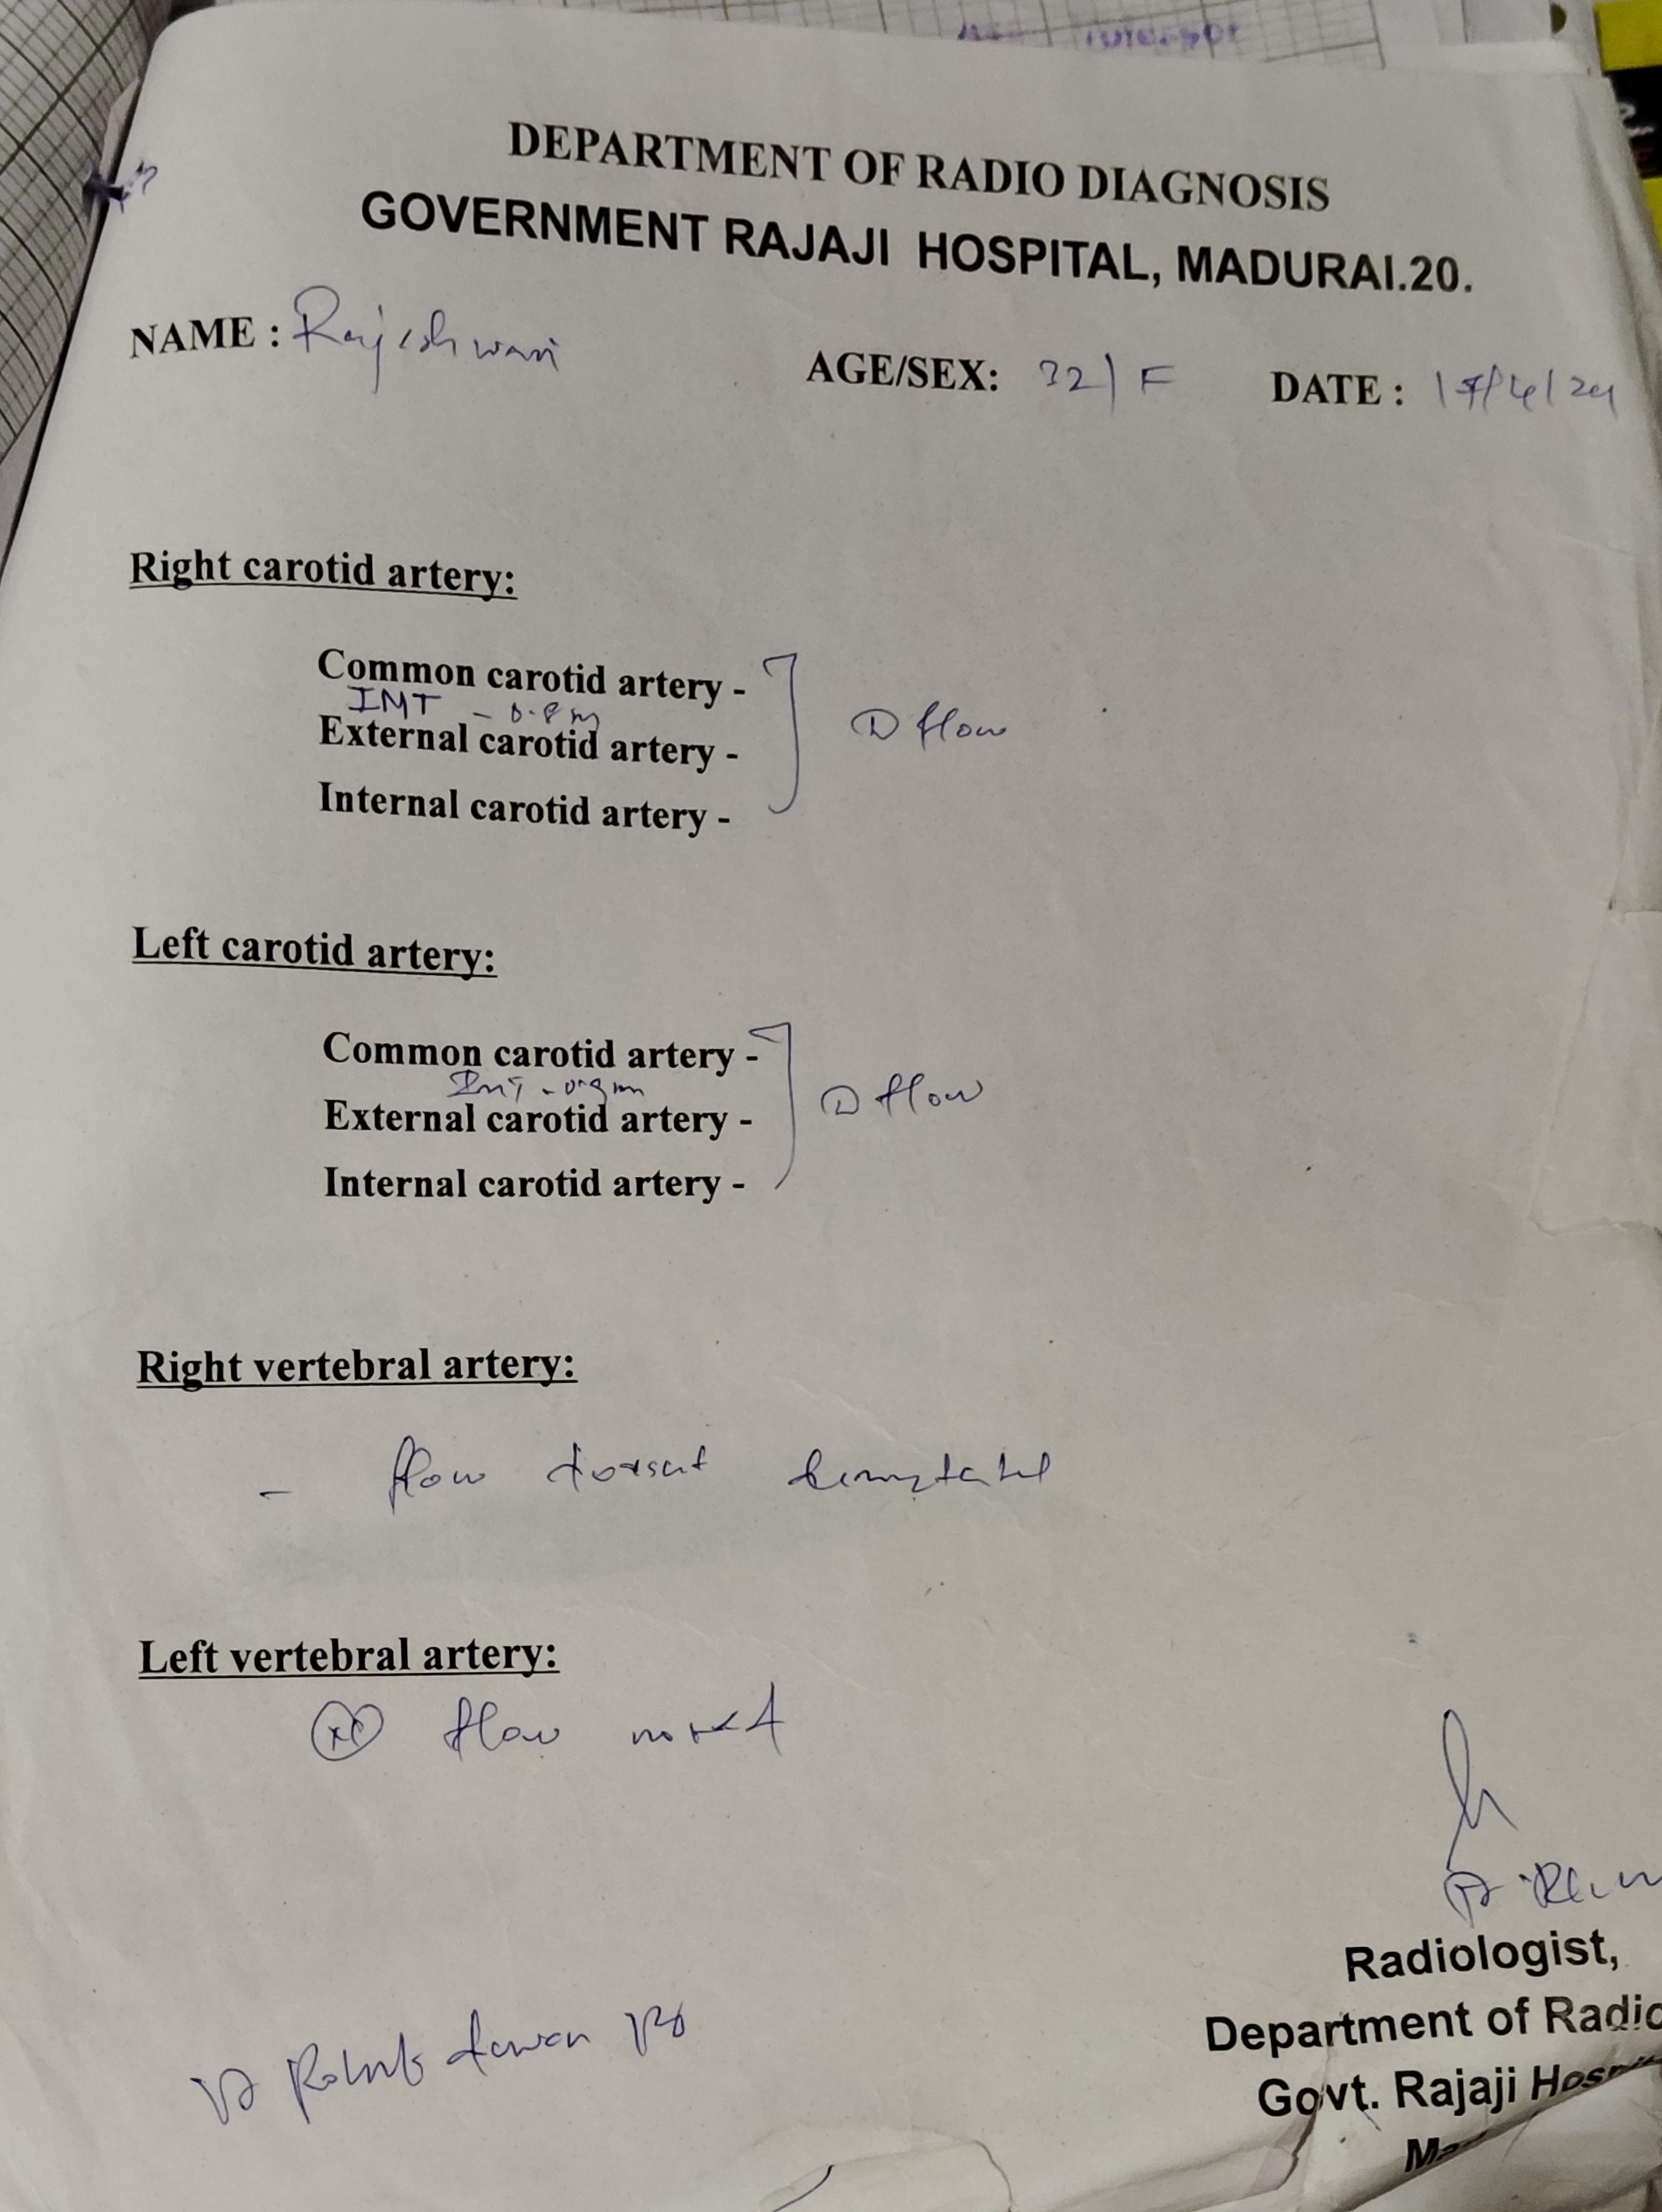 DEPARTMENT OF RADIO DIAGNOSIS
GOVERNMENT RAJAJI HOSPITAL, MADURAI.20.
NAME : Rajeshwari AGE/SEX: 32/F DATE :
Right carotid artery:
Common carotid artery -
IMT
External carotid artery - flow
Internal carotid artery -
Left carotid artery:
Common carotid artery -
IMT
External carotid artery - flow
Internal carotid artery -
Right vertebral artery:
- flow
Left vertebral artery:
flow noted
Radiologist,
Department of Radio
Govt. Rajaji Hosp
Ma